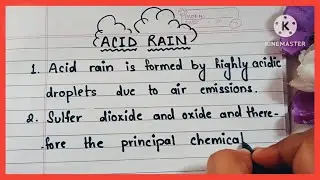 ACID RAIN
KINEMASTER
1. Acid rain is formed by highly acidic
droplets due to air emissions.
2. Sulfer dioxide and oxide and there-
-fore the principal chemical